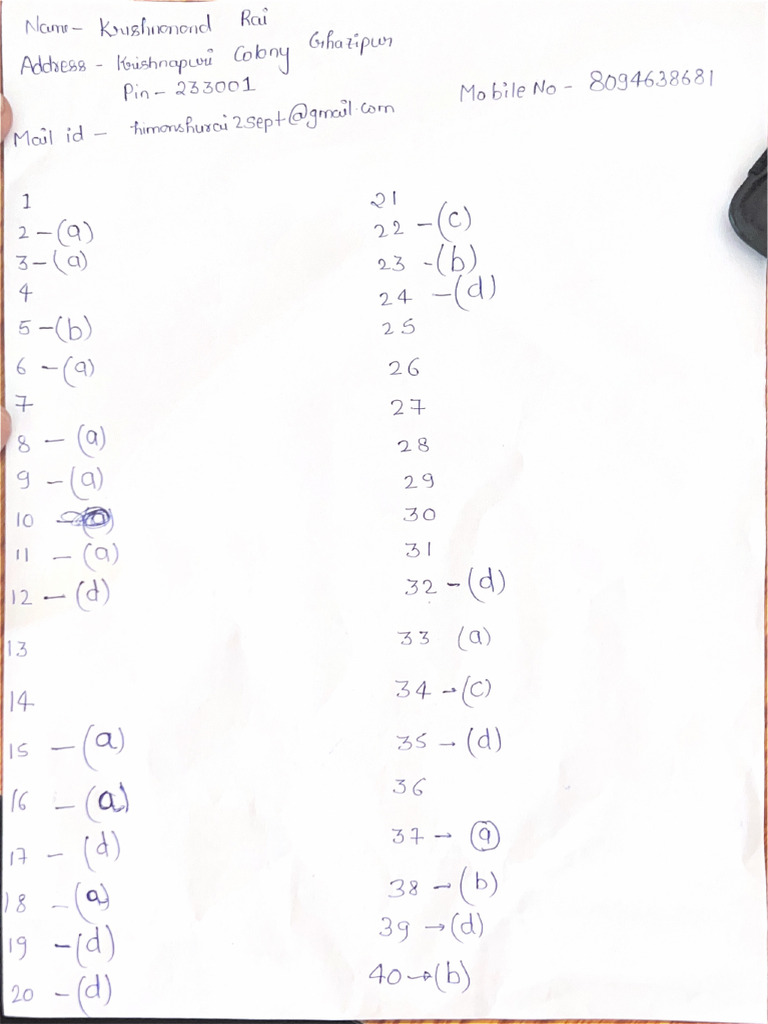 Name - Krushnanand Rai
Address - Krishnapuri Colony Ghazipur
Pin - 233001
Mobile No - 8094638681
Mail id - himanshurai2sept@gmail.com
1
2 - (a)
3 - (a)
4
5 - (b)
6 - (a)
7
8 - (a)
9 - (a)
10
11 - (a)
12 - (d)
13
14
15 - (a)
16 - (a)
17 - (d)
18 - (a)
19 - (d)
20 - (d)
21
22 - (c)
23 - (b)
24 - (d)
25
26
27
28
29
30
31
32 - (d)
33 (a)
34 → (c)
35 → (d)
36
37 → (a)
38 - (b)
39 → (d)
40 → (b)